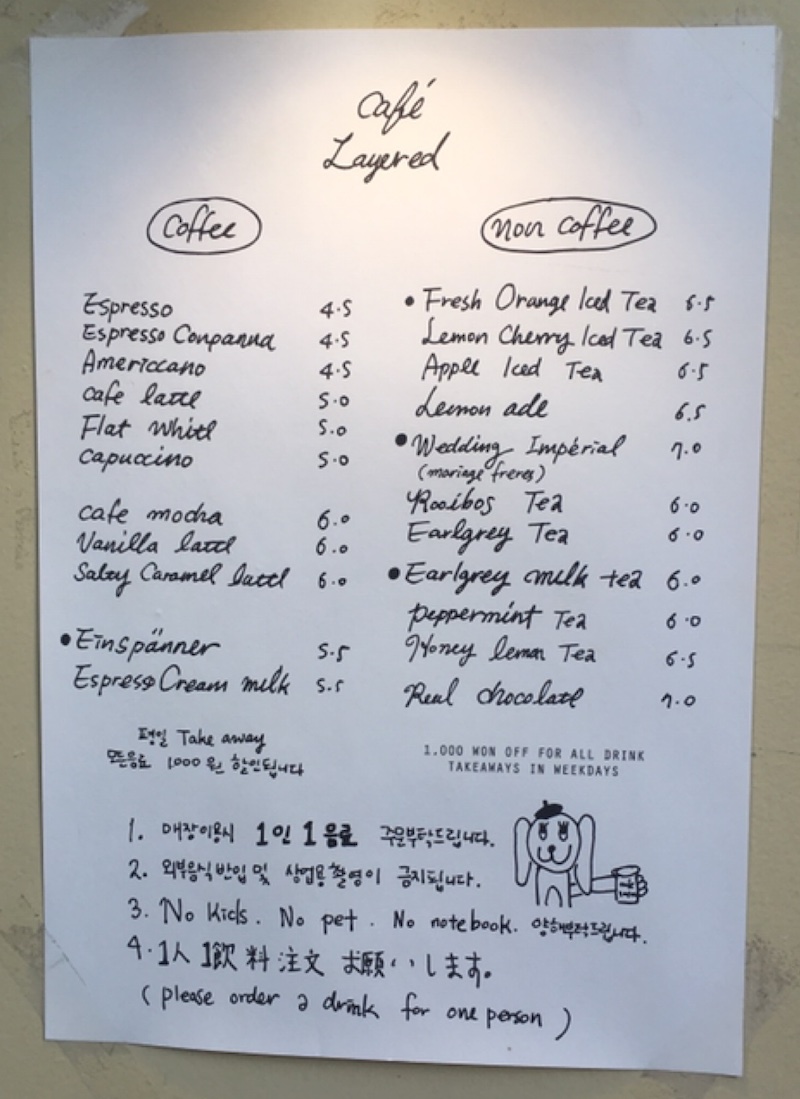 Café
Layered
Coffee
Espresso 4.5
Espresso Conpanna 4.5
Americcano 4.5
cafe latte 5.0
Flat White 5.0
capuccino 5.0
cafe mocha 6.0
Vanilla latte 6.0
Salty Caramel latte 6.0
• Einspänner 5.5
Espresso Cream milk 5.5
평일 Take away
모든음료 1,000원 할인됩니다
non coffee
• Fresh Orange Iced Tea 6.5
Lemon Cherry Iced Tea 6.5
Apple Iced Tea 6.5
Lemon ade 6.5
• Wedding Impérial 7.0
(mariage freres)
Rooibos Tea 6.0
Earlgrey Tea 6.0
• Earlgrey milk tea 6.0
peppermint Tea 6.0
Honey lemon Tea 6.5
Real chocolate 7.0
1.000 WON OFF FOR ALL DRINK
TAKEAWAYS IN WEEKDAYS
1. 매장이용시 1인 1음료 주문부탁드립니다.
2. 외부음식 반입 및 상업용 촬영이 금지됩니다.
3. No Kids. No pet. No notebook. 양해부탁드립니다.
4. 1人 1飲料 注文 お願いします。
(please order a drink for one person)